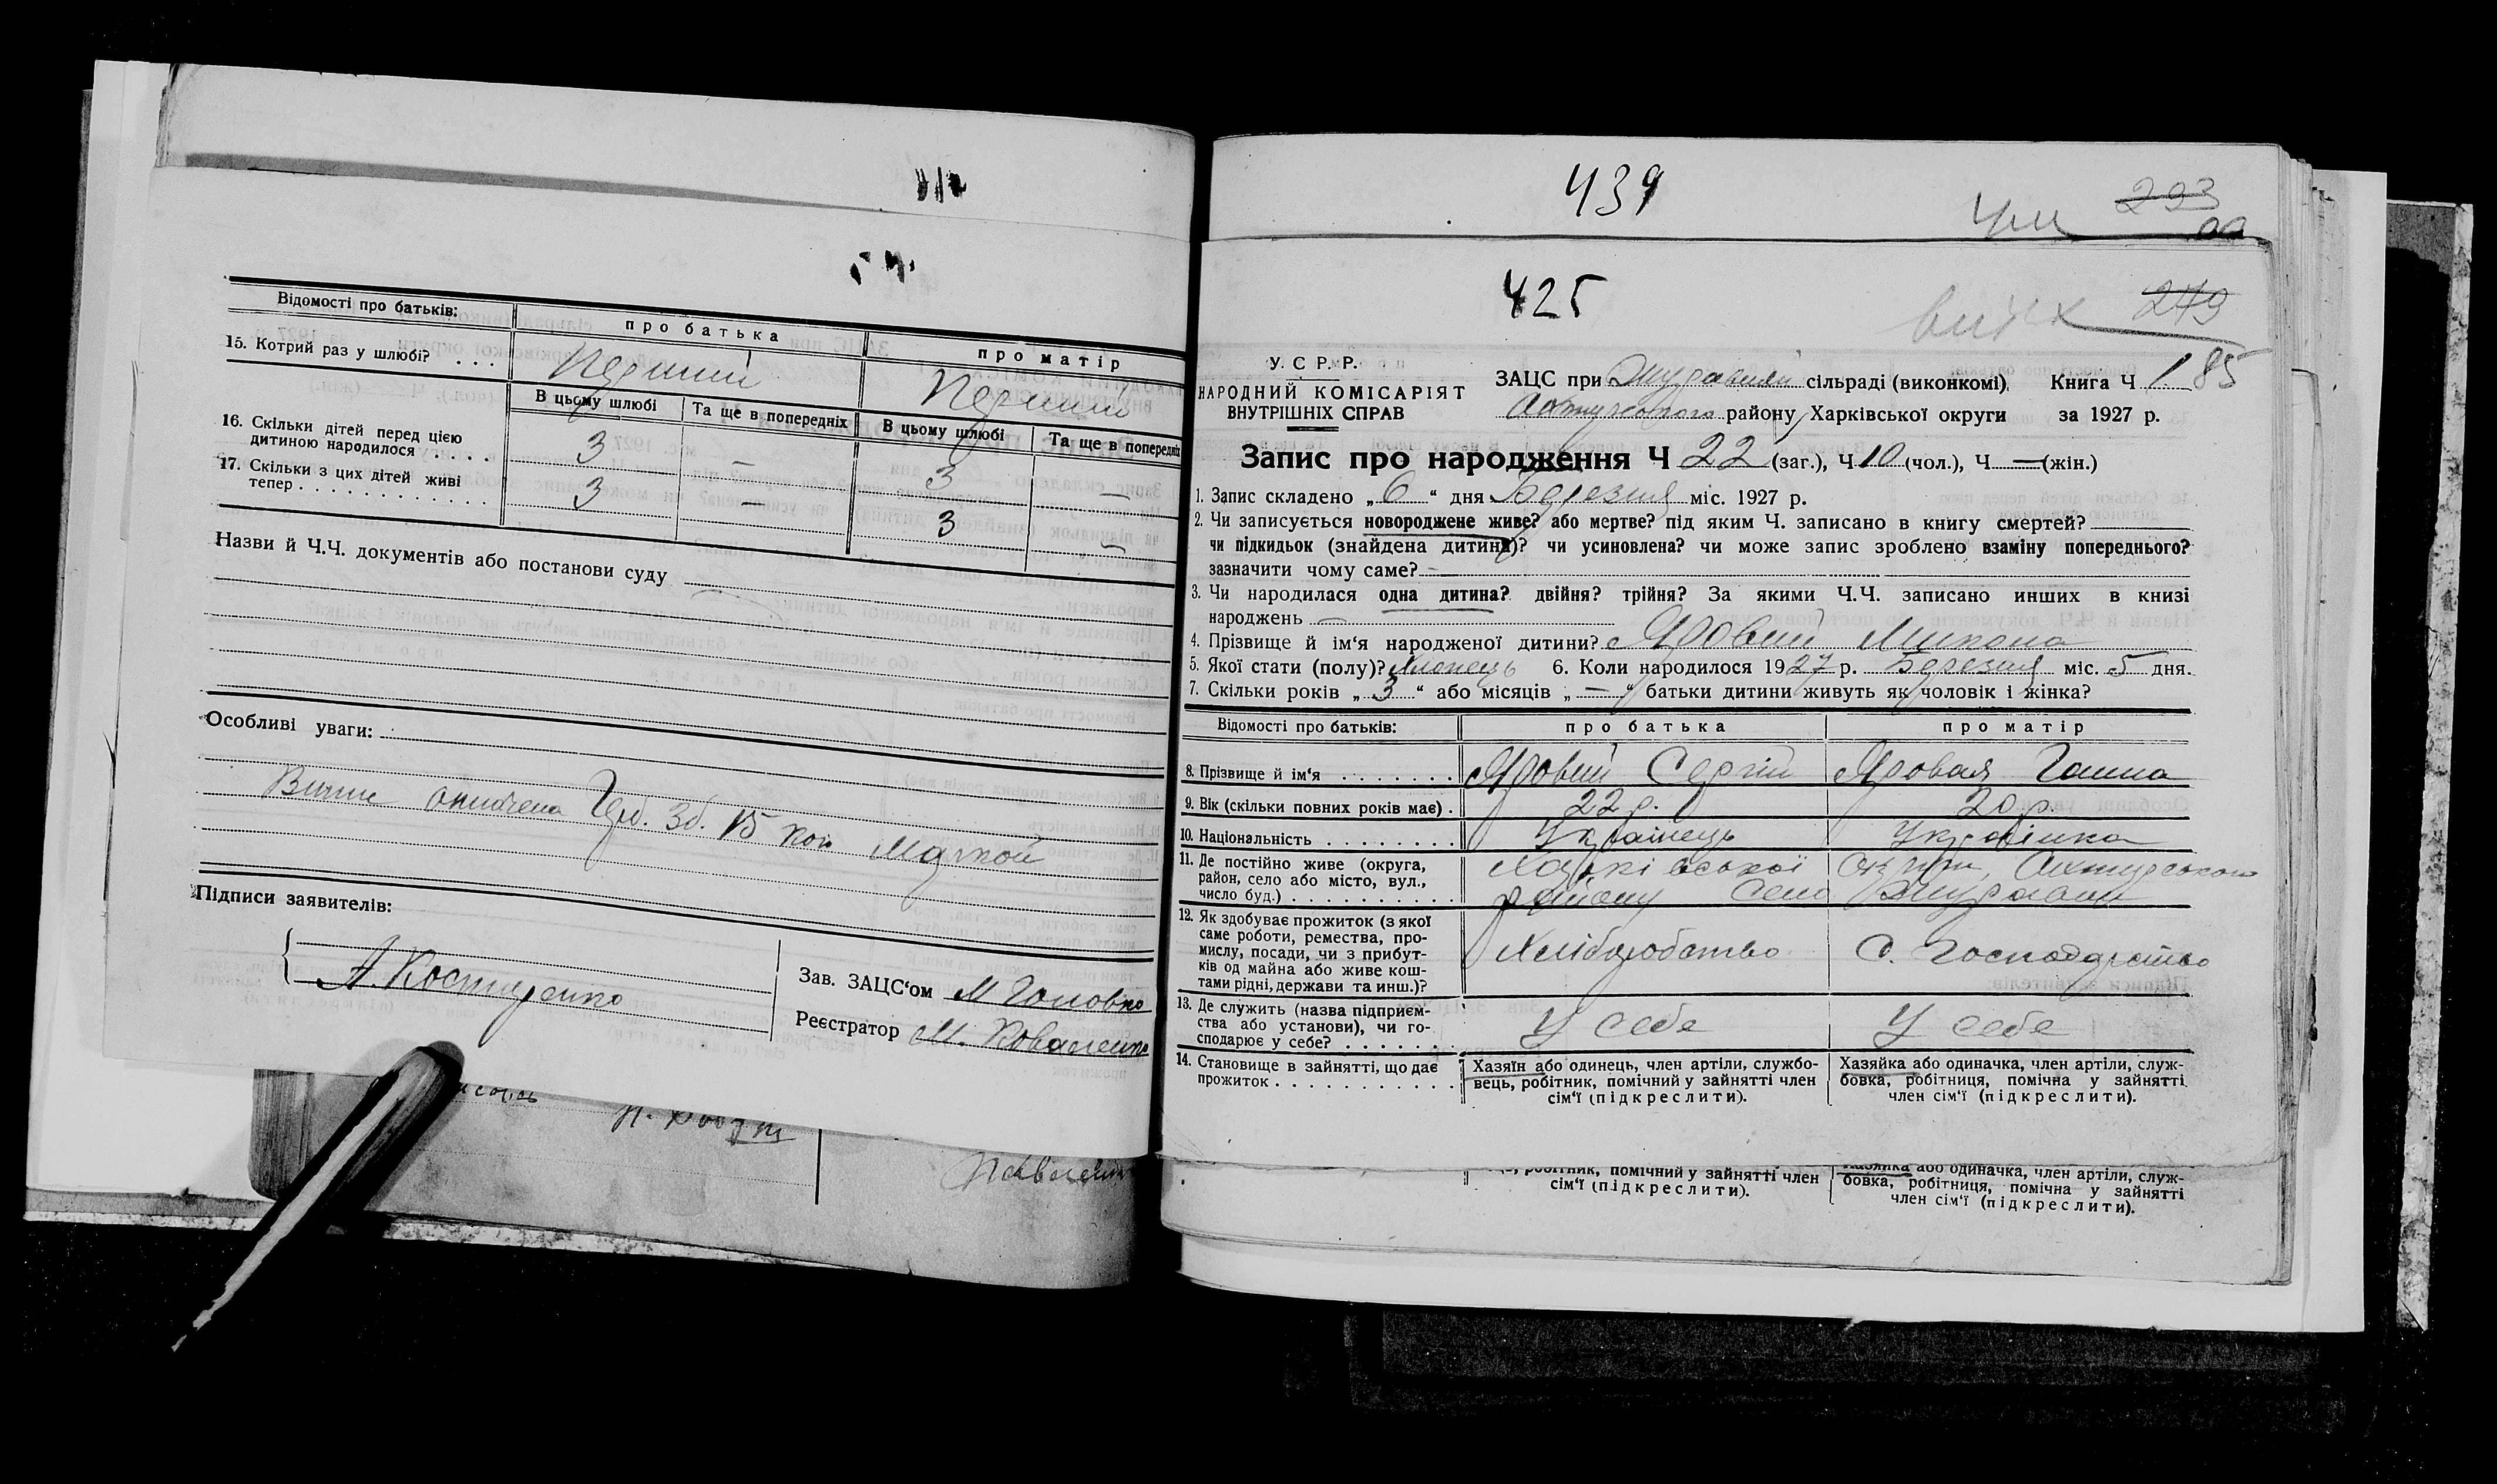 Відомості про батьків: про батька про матір
15. Котрий раз у шлюбі? . . . Перший Перший
В цьому шлюбі Та ще в попередніх В цьому шлюбі Та ще в попередніх
16. Скільки дітей перед цією
дитиною народилося . . . . . 3 — 3 —
17. Скільки з цих дітей живі
тепер . . . . . . . . . . . . 3 — 3 —
Назви й Ч.Ч. документів або постанови суду
Особливі уваги:
Гер. Зб. 15 коп
Підписи заявителів:
А. Костуренко
Зав. ЗАЦС‘ом М Головко
Реєстратор М. Коваленко
439
293
425
279
У. С Р. Р.
НАРОДНИЙ КОМІСАРІЯТ
ВНУТРІШНІХ СПРАВ
ЗАЦС при сільраді (виконкомі), Книга Ч 1 85
району Харківської округи за 1927 р.
Запис про народження Ч 22 (заг.), Ч 10 (чол.), Ч — (жін.)
1. Запис складено „ 6 “ дня Березня міс. 1927 р.
2. Чи записується новороджене живе? або мертве? під яким Ч. записано в книгу смертей?
чи підкидьок (знайдена дитина)? чи усиновлена? чи може запис зроблено взаміну попереднього?
зазначити чому саме? —
3. Чи народилася одна дитина? двійня? трійня? За якими Ч.Ч. записано инших в книзі
народжень —
4. Прізвище й ім‘я народженої дитини? Яровий Микола
5. Якої стати (полу)? Хлопець 6. Коли народилося 1927 р. Березня міс. 5 дня.
7. Скільки років „ 3 “ або місяців „ — “ батьки дитини живуть як чоловік і жінка?
Відомості про батьків: про батька про матір
8. Прізвище й ім‘я . . . . . . . Яровий Сергій Яровая Ганна
9. Вік (скільки повних років має) . 22 р. 20 р.
10. Національність . . . . . . . . Українець Українка
11. Де постійно живе (округа, Харківської округи,
район, село або місто, вул.,
число буд.) . . . . . . . . . . . району Село
12. Як здобуває прожиток (з якої
саме роботи, ремества, про-
мислу, посади, чи з прибут- Хліборобство С. Господарство
ків од майна або живе кош-
тами рідні, держави та инш.)?
13. Де служить (назва підприєм-
ства або установи), чи го- У себе У себе
сподарює у себе? . . . . . . .
14. Становище в зайнятті, що дає Хазяїн або одинець, член артіли, службо- Хазяйка або одиначка, член артіли, служ-
прожиток . . . . . . . . . . . . вець, робітник, помічний у зайнятті член бовка, робітниця, помічна у зайнятті
сім‘ї (підкреслити). член сім‘ї (підкреслити).
робітник, помічний у зайнятті член Хазяйка або одиначка, член артіли, служ-
сім‘ї (підкреслити). бовка, робітниця, помічна у зайнятті
член сім‘ї (підкреслити).